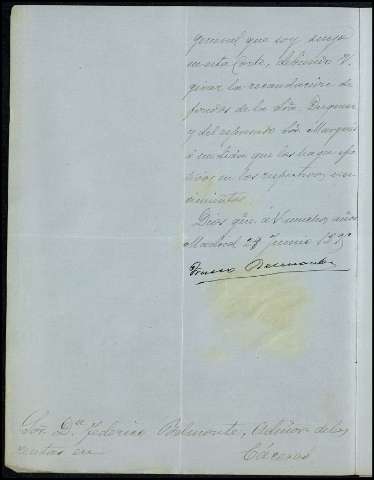 general que soy suyo
en esta Corte, debiendo V.
girar la recaudación de
fondos de la dña. Duquesa
y del espresado Sór. Marqués
á mi que los haga efec
tivos en los respectivos ven
cimientos.
Dios gũe á V. muchos años
Madrid 28 Junio
Belmonte
Sór. Dn. Federico Belmonte, Admor. de las
rentas en Cáceres